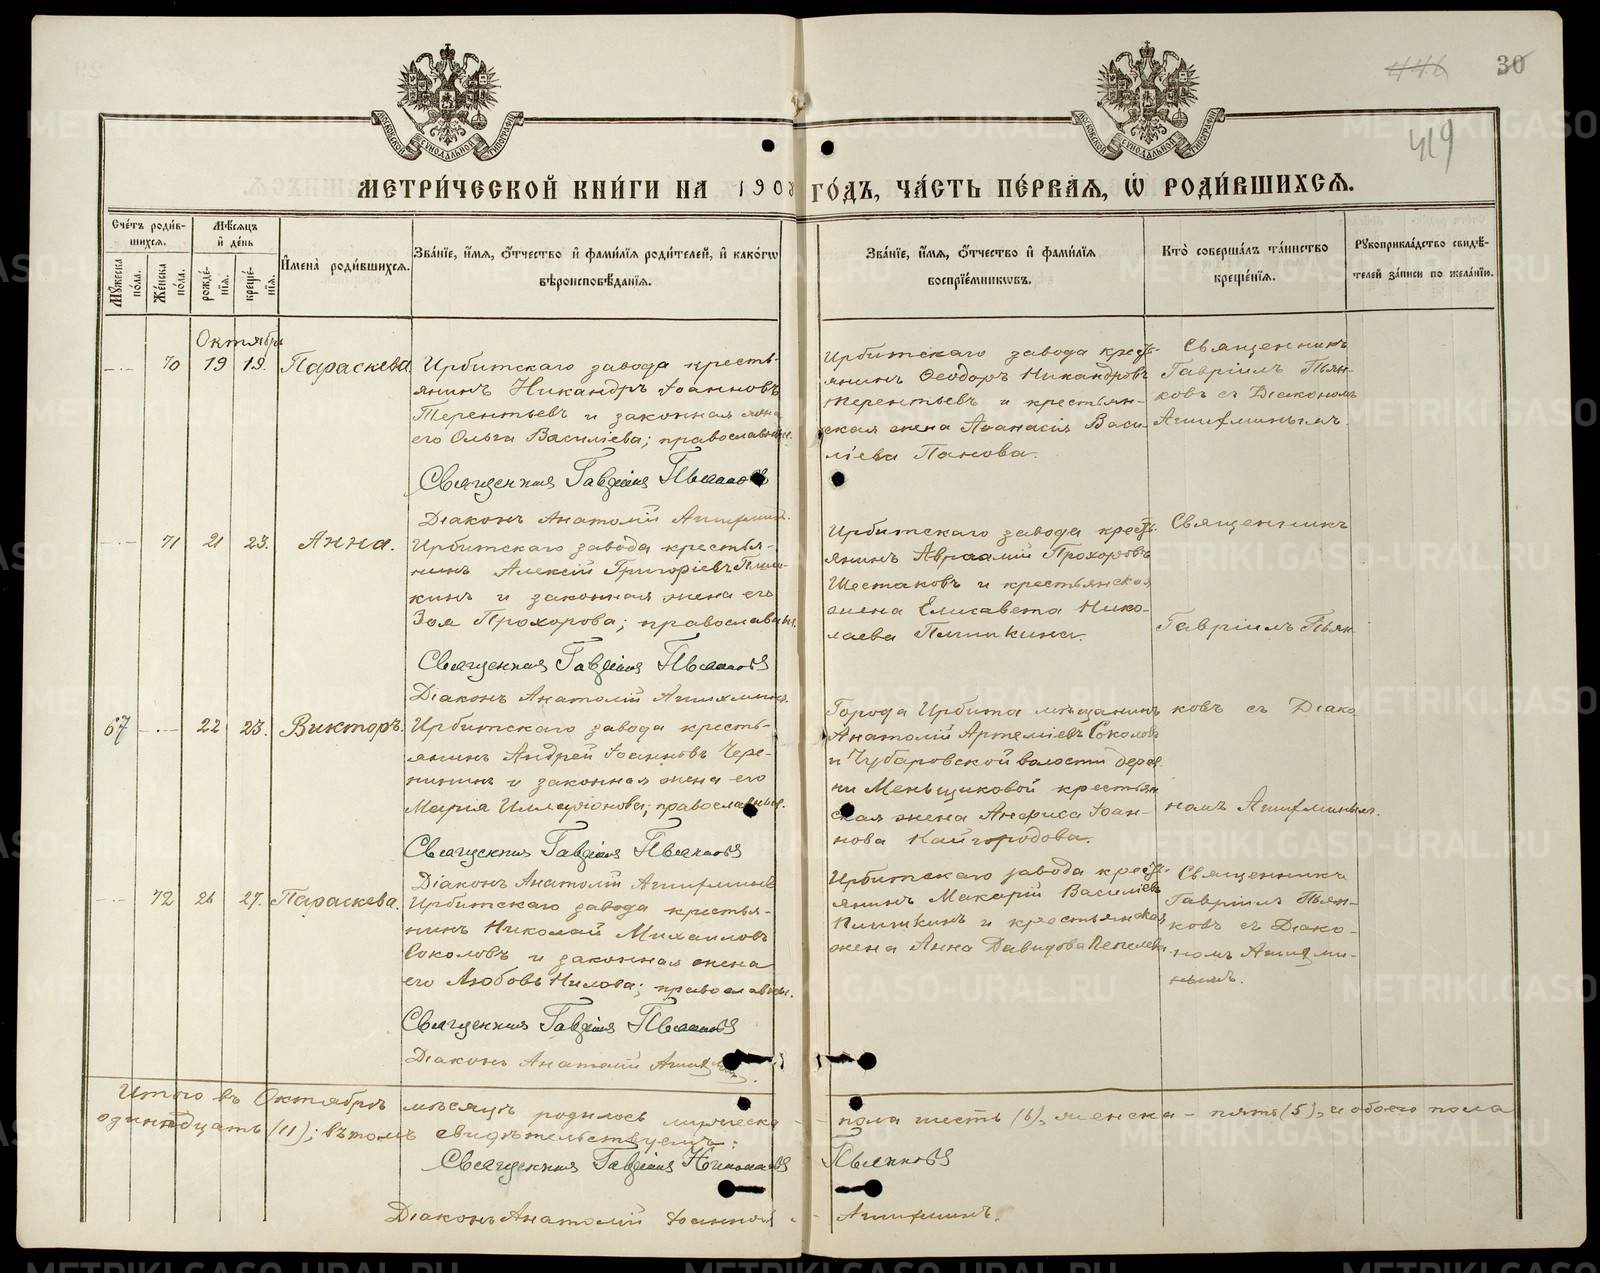 446 30
419
МОСКОВСКОЙ СѴНОДАЛЬНОЙ ТИПОГРАФІИ
МОСКОВСКОЙ СѴНОДАЛЬНОЙ ТИПОГРАФІИ
МЕТРИ́ЧЕСКОЙ КНИ́ГИ НА 1908 ГО́ДЪ, ЧА́СТЬ ПЕ́РВАЯ, Ѡ РОДИ́ВШИХСЯ.
Счетъ родившихся.
Мужеска пола.
Женска пола.
Мѣсяцъ и день
рожденія.
крещенія.
Имена родившихся.
Званіе, имя, отчество и фамилія родителей, и какогѡ
вѣроисповѣданія.
Званіе, имя, отчество и фамилія
воспріемникѡвъ.
Кто совершалъ таинство
крещенія.
Рукоприкладство свидѣ-
телей записи по желанію.
Октябрь
70 19 19. Параскева
Ирбитскаго завода кресть-
янинъ Никандръ Іоанновъ
Терентьевъ и законная жена
его Ольга Василіева; православные.
Священникъ Гавріилъ Пьянковъ
Діаконъ Анатолій
Ирбитскаго завода кресть-
янинъ Ѳеодоръ Никандровъ
Терентьевъ и крестьян-
ская жена Аѳанасія Васи-
ліева Панова.
Священникъ
Гавріилъ Пьян-
ковъ съ Діакономъ
71 21 23. Анна.
Ирбитскаго завода крестья-
нинъ Алексій Григоріевъ Пиш-
кинъ и законная жена его
Зоя Прохорова; православные.
Священникъ Гавріилъ Пьянковъ
Діаконъ Анатолій
Ирбитскаго завода кресть-
янинъ Авраамій Прохоровъ
Шестаковъ и крестьянская
жена Елисавета Нико-
лаева Пишкина.
Священникъ
Гавріилъ Пьян-
67 22 23. Викторъ.
Ирбитскаго завода кресть-
янинъ Андрей Іоанновъ Чере-
пининъ и законная жена его
Марія Илларіонова; православные.
Священникъ Гавріилъ Пьянковъ
Діаконъ Анатолій
Города Ирбита мѣщанинъ
Анатолій Артеміевъ Соколовъ
и Чубаровской волости дерев-
ни Меньщиковой крестьян-
ская жена Анфиса Іоан-
нова Кайгородова.
ковъ съ Діако-
номъ
72 26 27. Параскева.
Ирбитскаго завода крестья-
нинъ Николай Михаиловъ
Соколовъ и законная жена
его Любовь Нилова; православные.
Священникъ Гавріилъ Пьянковъ
Діаконъ Анатолій
Ирбитскаго завода кресть-
янинъ Макарій Василіевъ
Пишкинъ и крестьянская
жена Анна Давидова
Священникъ
Гавріилъ Пьян-
ковъ съ Діако-
номъ
Итого въ Октябрѣ мѣсяцѣ родилось мужеска пола шесть (6), женска - пять (5), и обоего пола
одиннадцать (11); въ томъ свидѣтельствуемъ:
Священникъ Гавріилъ Пьянковъ
Діаконъ Анатолій
METRIKI.GASO-URAL.RU